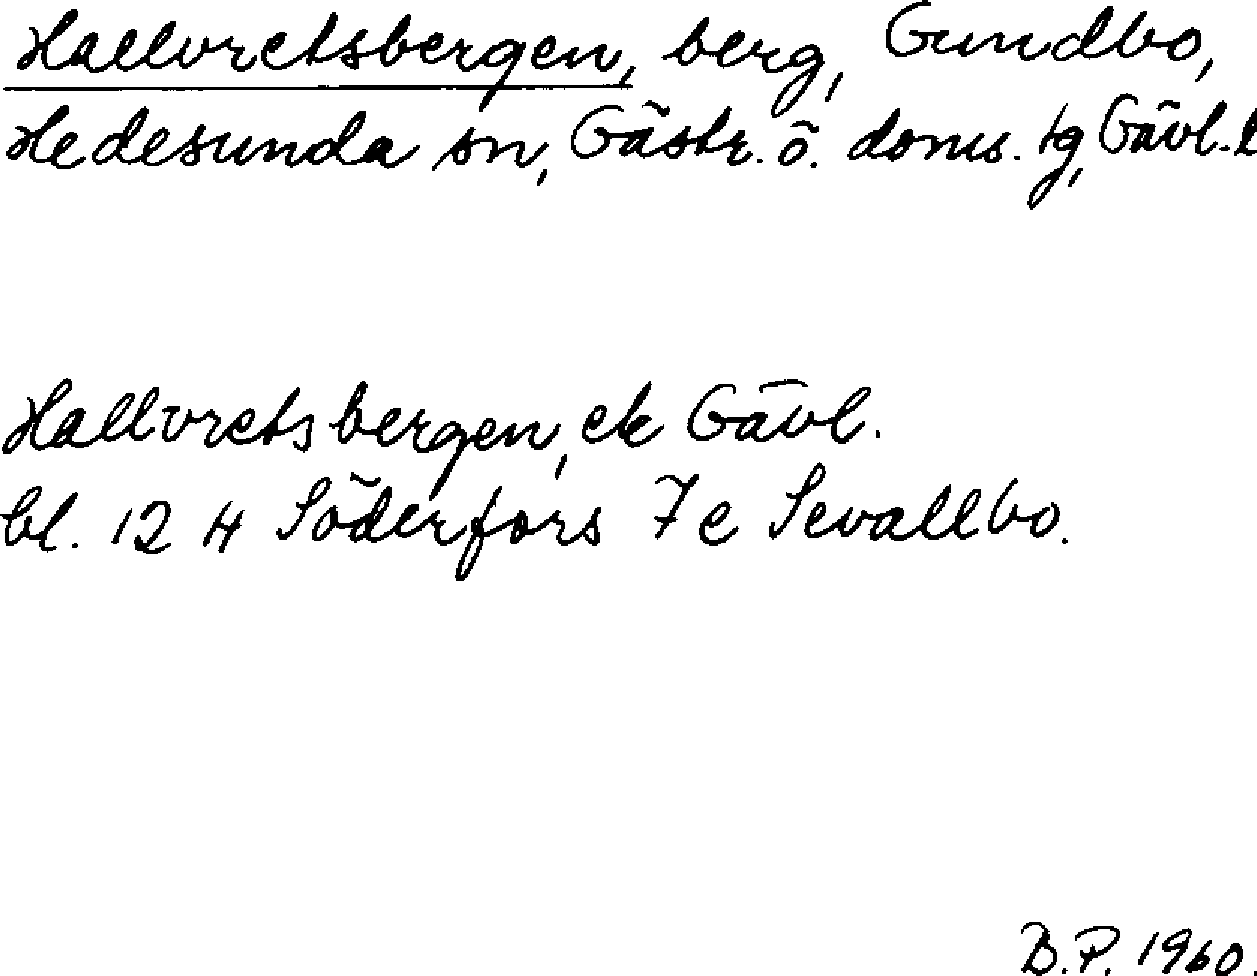 Hallvretsbergen, berg, Gundbo,
Hedesunda sn, Gästr. ö. doms. tg, Gävl. l
Hallvretsbergen, ek Gävl.
bl. 12 H Söderfors 7 e Sevallbo.
B.P. 1960.